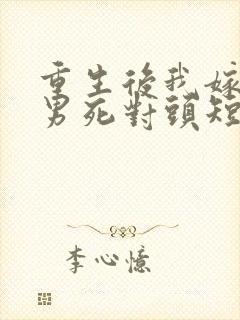 重生後我嫁
男死對頭短
李心憶